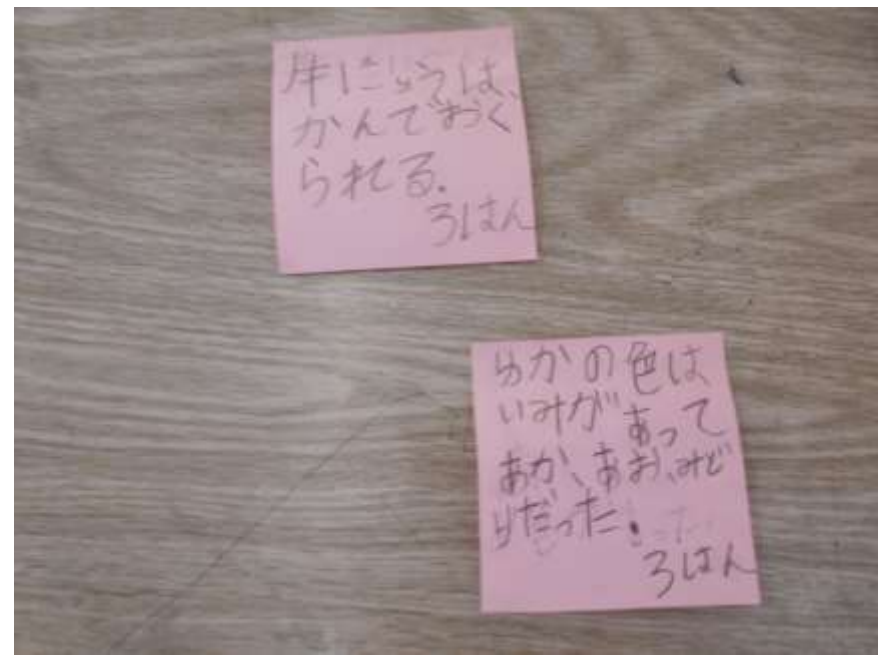 牛にゅうは、
かんでおく
られる.
ろはん
ゆかの色は
いみがあって
あか、あお、みど
りだった.
ろはん